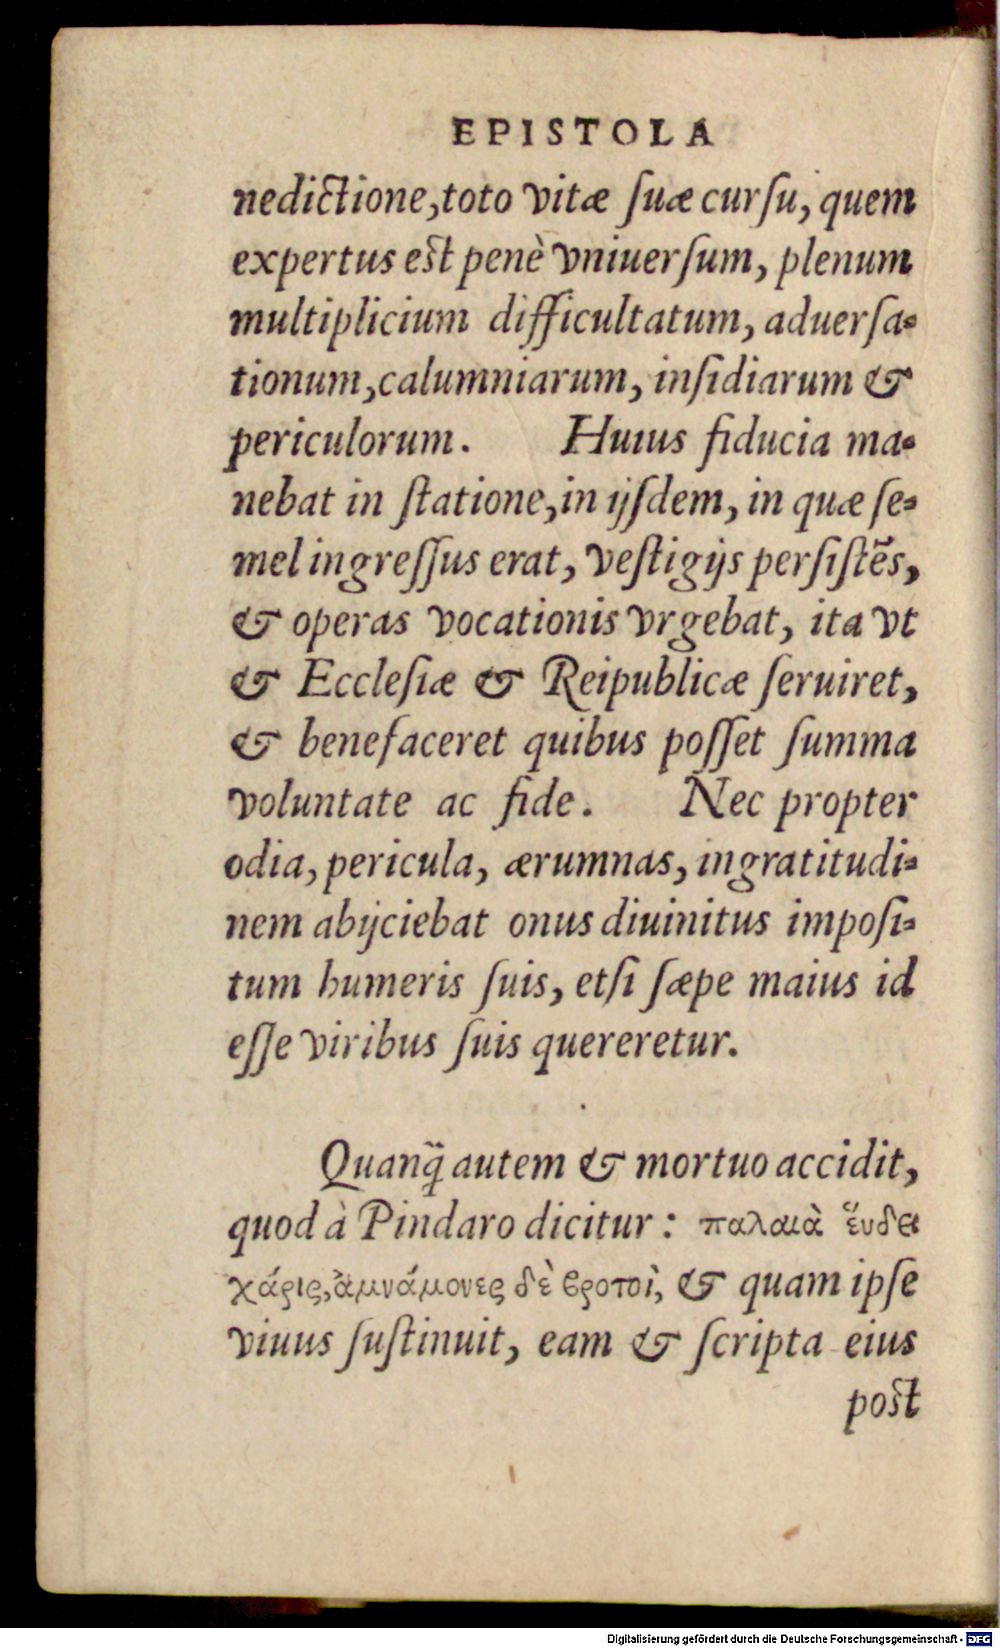 EPISTOLA
nedictione, toto vitæ ſuæ curſu, quem
expertus est penè vniuerſum, plenum
multiplicium difficultatum, aduerſa-
tionum, calumniarum, inſidiarum &
periculorum. Huius fiducia ma-
nebat in ſtatione, in ijſdem, in quæ ſe-
mel ingreſſus erat, veſtigijs perſiſtẽs,
& operas vocationis vrgebat, ita vt
& Eccleſiæ & Reipublicæ ſeruiret,
& benefaceret quibus poſſet ſumma
voluntate ac fide. Nec propter
odia, pericula, ærumnas, ingratitudi-
nem abijciebat onus diuinitus impoſi-
tum humeris ſuis, etſi ſæpe maius id
eſſe viribus ſuis quereretur.
Quanq̃ autem & mortuo accidit,
quod à Pindaro dicitur: παλαιὰ ἕυδει
χάρις, ἀμνάμονες δὲ βροτοὶ, & quam ipſe
viuus ſuſtinuit, eam & ſcripta eius
post
Digitalisierung gefördert durch die Deutsche Forschungsgemeinschaft - DFG